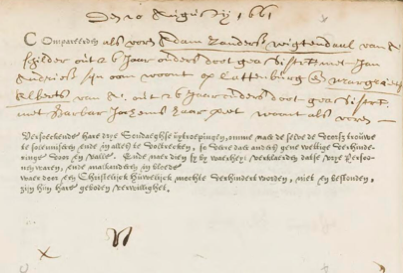 Den 10 Augusty 1661
Compareerden als voren Adam Zanders Weigtendaal van A.
schilder out 26 Jaar ouders doot geassisteert met Jan
Andries sijn oom woont op Cattenburg & Margarietje
Elberts van A. out 26 Jaar ouders doot geassisteert
met Barbar Jochems haar woont als voren
Versoeckende hare drie Sondaeghse uytroepingen, omme naer de selve de Trouwe
te solemniseren ende in alles te voltrecken, so daer anders geen wettige verhinde-
ringe voor en valle. Ende naer dien sy by waerheyt verklaerden datse vrye Persoo-
nen waren, ende malkanderen in bloede
waer door een Christelijck Huwelijck mochte verhindert worden, niet en bestonden,
zijn hun hare geboden verwillight.